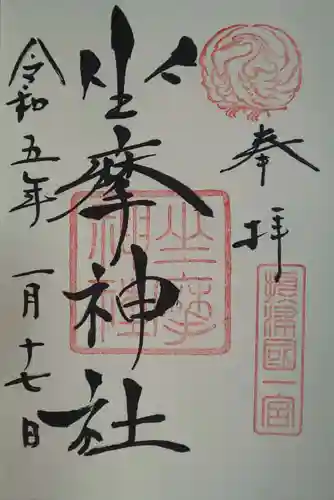 奉拝
摂津國一宮
坐摩神社
坐摩神社
令和五年 一月十七日